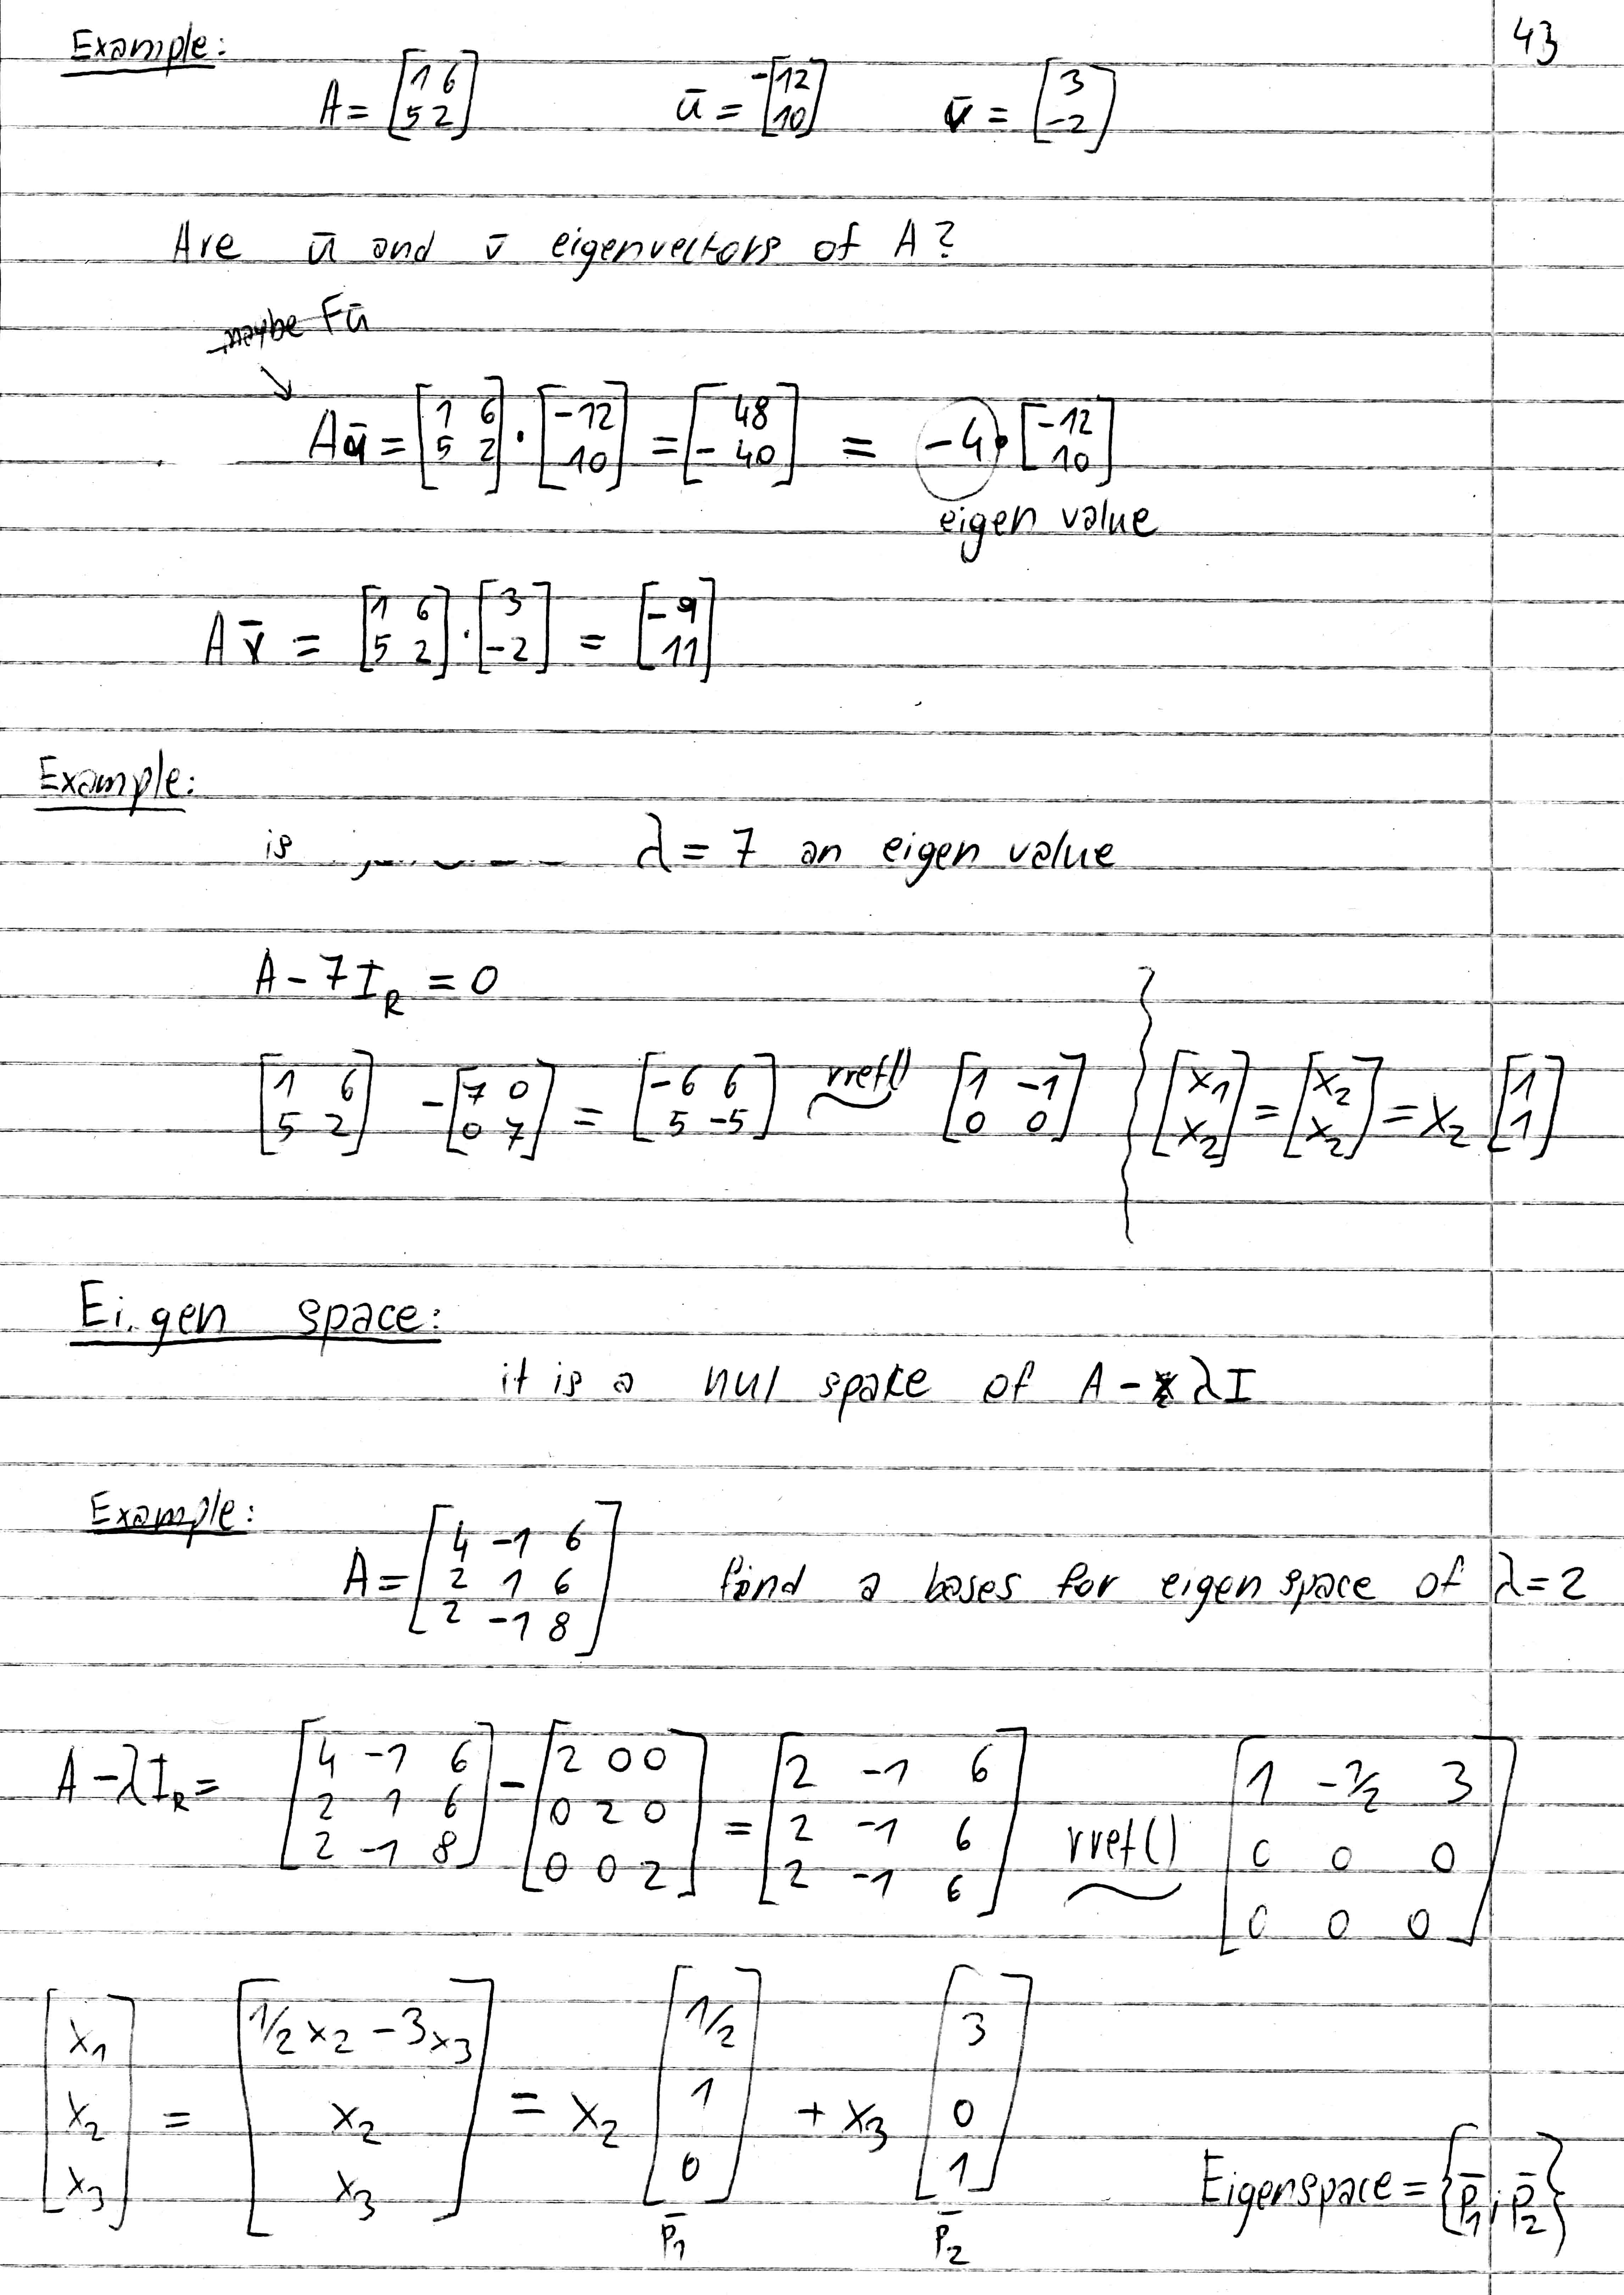 43
Example:
A = [1 6; 5 2] ū = [-12; 10] v̄ = [3; -2]
Are ū and v̄ eigenvectors of A?
Aū = [1 6; 5 2] · [-12; 10] = [48; -40] = -4 · [-12; 10]
eigen value
Av̄ = [1 6; 5 2] · [3; -2] = [-9; 11]
Example:
is λ = 7 an eigen value
A - 7I_R = 0
[1 6; 5 2] - [7 0; 0 7] = [-6 6; 5 -5] rref() [1 -1; 0 0] [x₁; x₂] = [x₂; x₂] = x₂ [1; 1]
Ei.gen space:
it is a nul space of A - λI
Example:
A = [4 -1 6; 2 1 6; 2 -1 8] find a bases for eigen space of λ = 2
A - λI_R = [4 -1 6; 2 1 6; 2 -1 8] - [2 0 0; 0 2 0; 0 0 2] = [2 -1 6; 2 -1 6; 2 -1 6] rref() [1 -1/2 3; 0 0 0; 0 0 0]
[x₁; x₂; x₃] = [1/2 x₂ - 3x₃; x₂; x₃] = x₂ [1/2; 1; 0] + x₃ [3; 0; 1]
p̄₁ p̄₂
Eigenspace = {p̄₁, p̄₂}